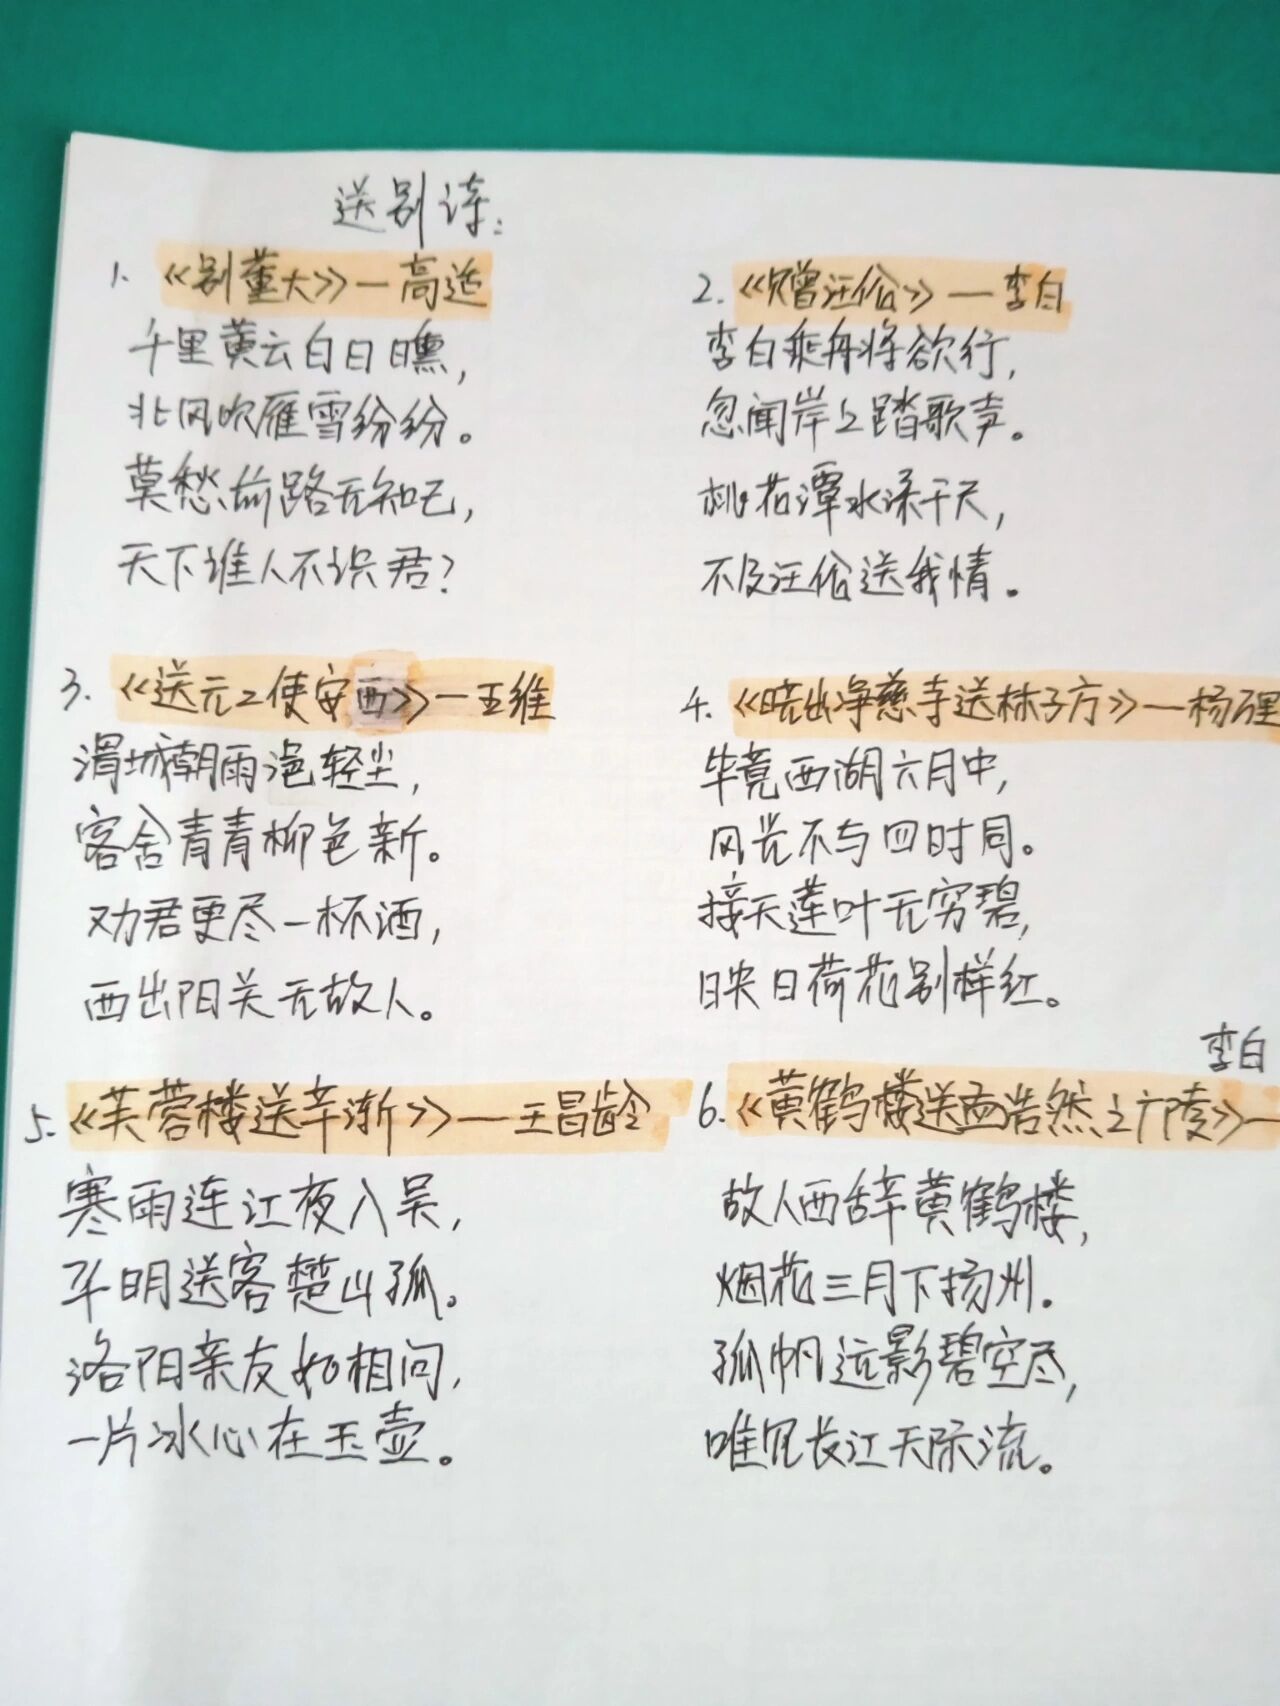 送别诗：
1.《别董大》—高适
千里黄云白日曛，
北风吹雁雪纷纷。
莫愁前路无知己，
天下谁人不识君？
2.《赠汪伦》—李白
李白乘舟将欲行，
忽闻岸上踏歌声。
桃花潭水深千尺，
不及汪伦送我情。
3.《送元二使安西》—王维
渭城朝雨浥轻尘，
客舍青青柳色新。
劝君更尽一杯酒，
西出阳关无故人。
4.《晓出净慈寺送林子方》—杨万里
毕竟西湖六月中，
风光不与四时同。
接天莲叶无穷碧，
映日荷花别样红。
5.《芙蓉楼送辛渐》—王昌龄
寒雨连江夜入吴，
平明送客楚山孤。
洛阳亲友如相问，
一片冰心在玉壶。
李白
6.《黄鹤楼送孟浩然之广陵》—
故人西辞黄鹤楼，
烟花三月下扬州。
孤帆远影碧空尽，
唯见长江天际流。